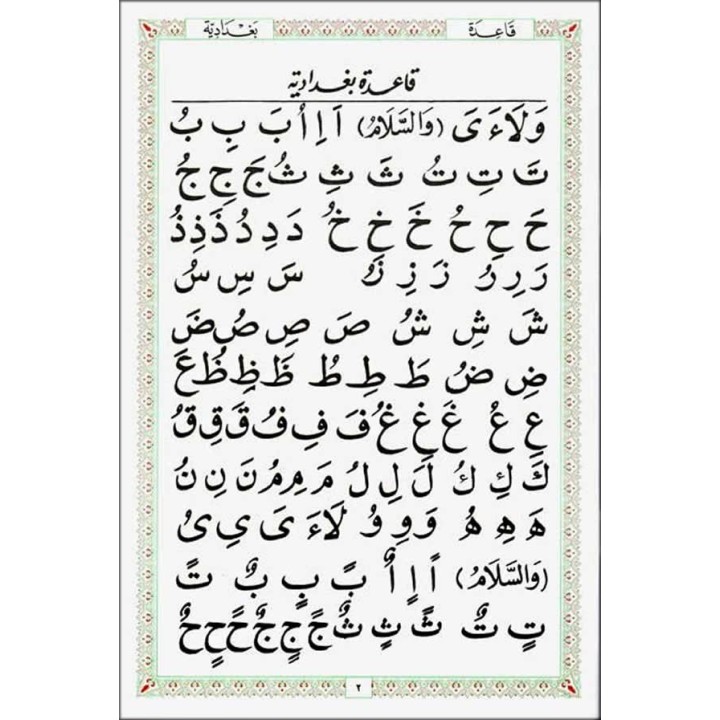 قَاعِدَة بَغْدَادِيَّة
قاعدة بغدادية
وَ لَاءَ یَ (وَالسَّلَامُ) اَ اِ اُ بَ بِ بُ
تَ تِ تُ ثَ ثِ ثُ جَ جِ جُ
حَ حِ حُ خَ خِ خُ دَ دِ دُ ذَ ذِ ذُ
رَ رِ رُ زَ زِ زُ سَ سِ سُ
شَ شِ شُ صَ صِ صُ ضَ
ضِ ضُ طَ طِ طُ ظَ ظِ ظُ عَ
عِ عُ غَ غِ غُ فَ فِ فُ قَ قِ قُ
كَ كِ كُ لَ لِ لُ مَ مِ مُ نَ نِ نُ
هَ هِ هُ وَ وِ وُ لَاءَ یَ یِ یُ
(وَالسَّلَامُ) اً اٍ اٌ بً بٍ بٌ تً
تٍ تٌ ثً ثٍ ثٌ جً جٍ جٌ حً حٍ حٌ
٢